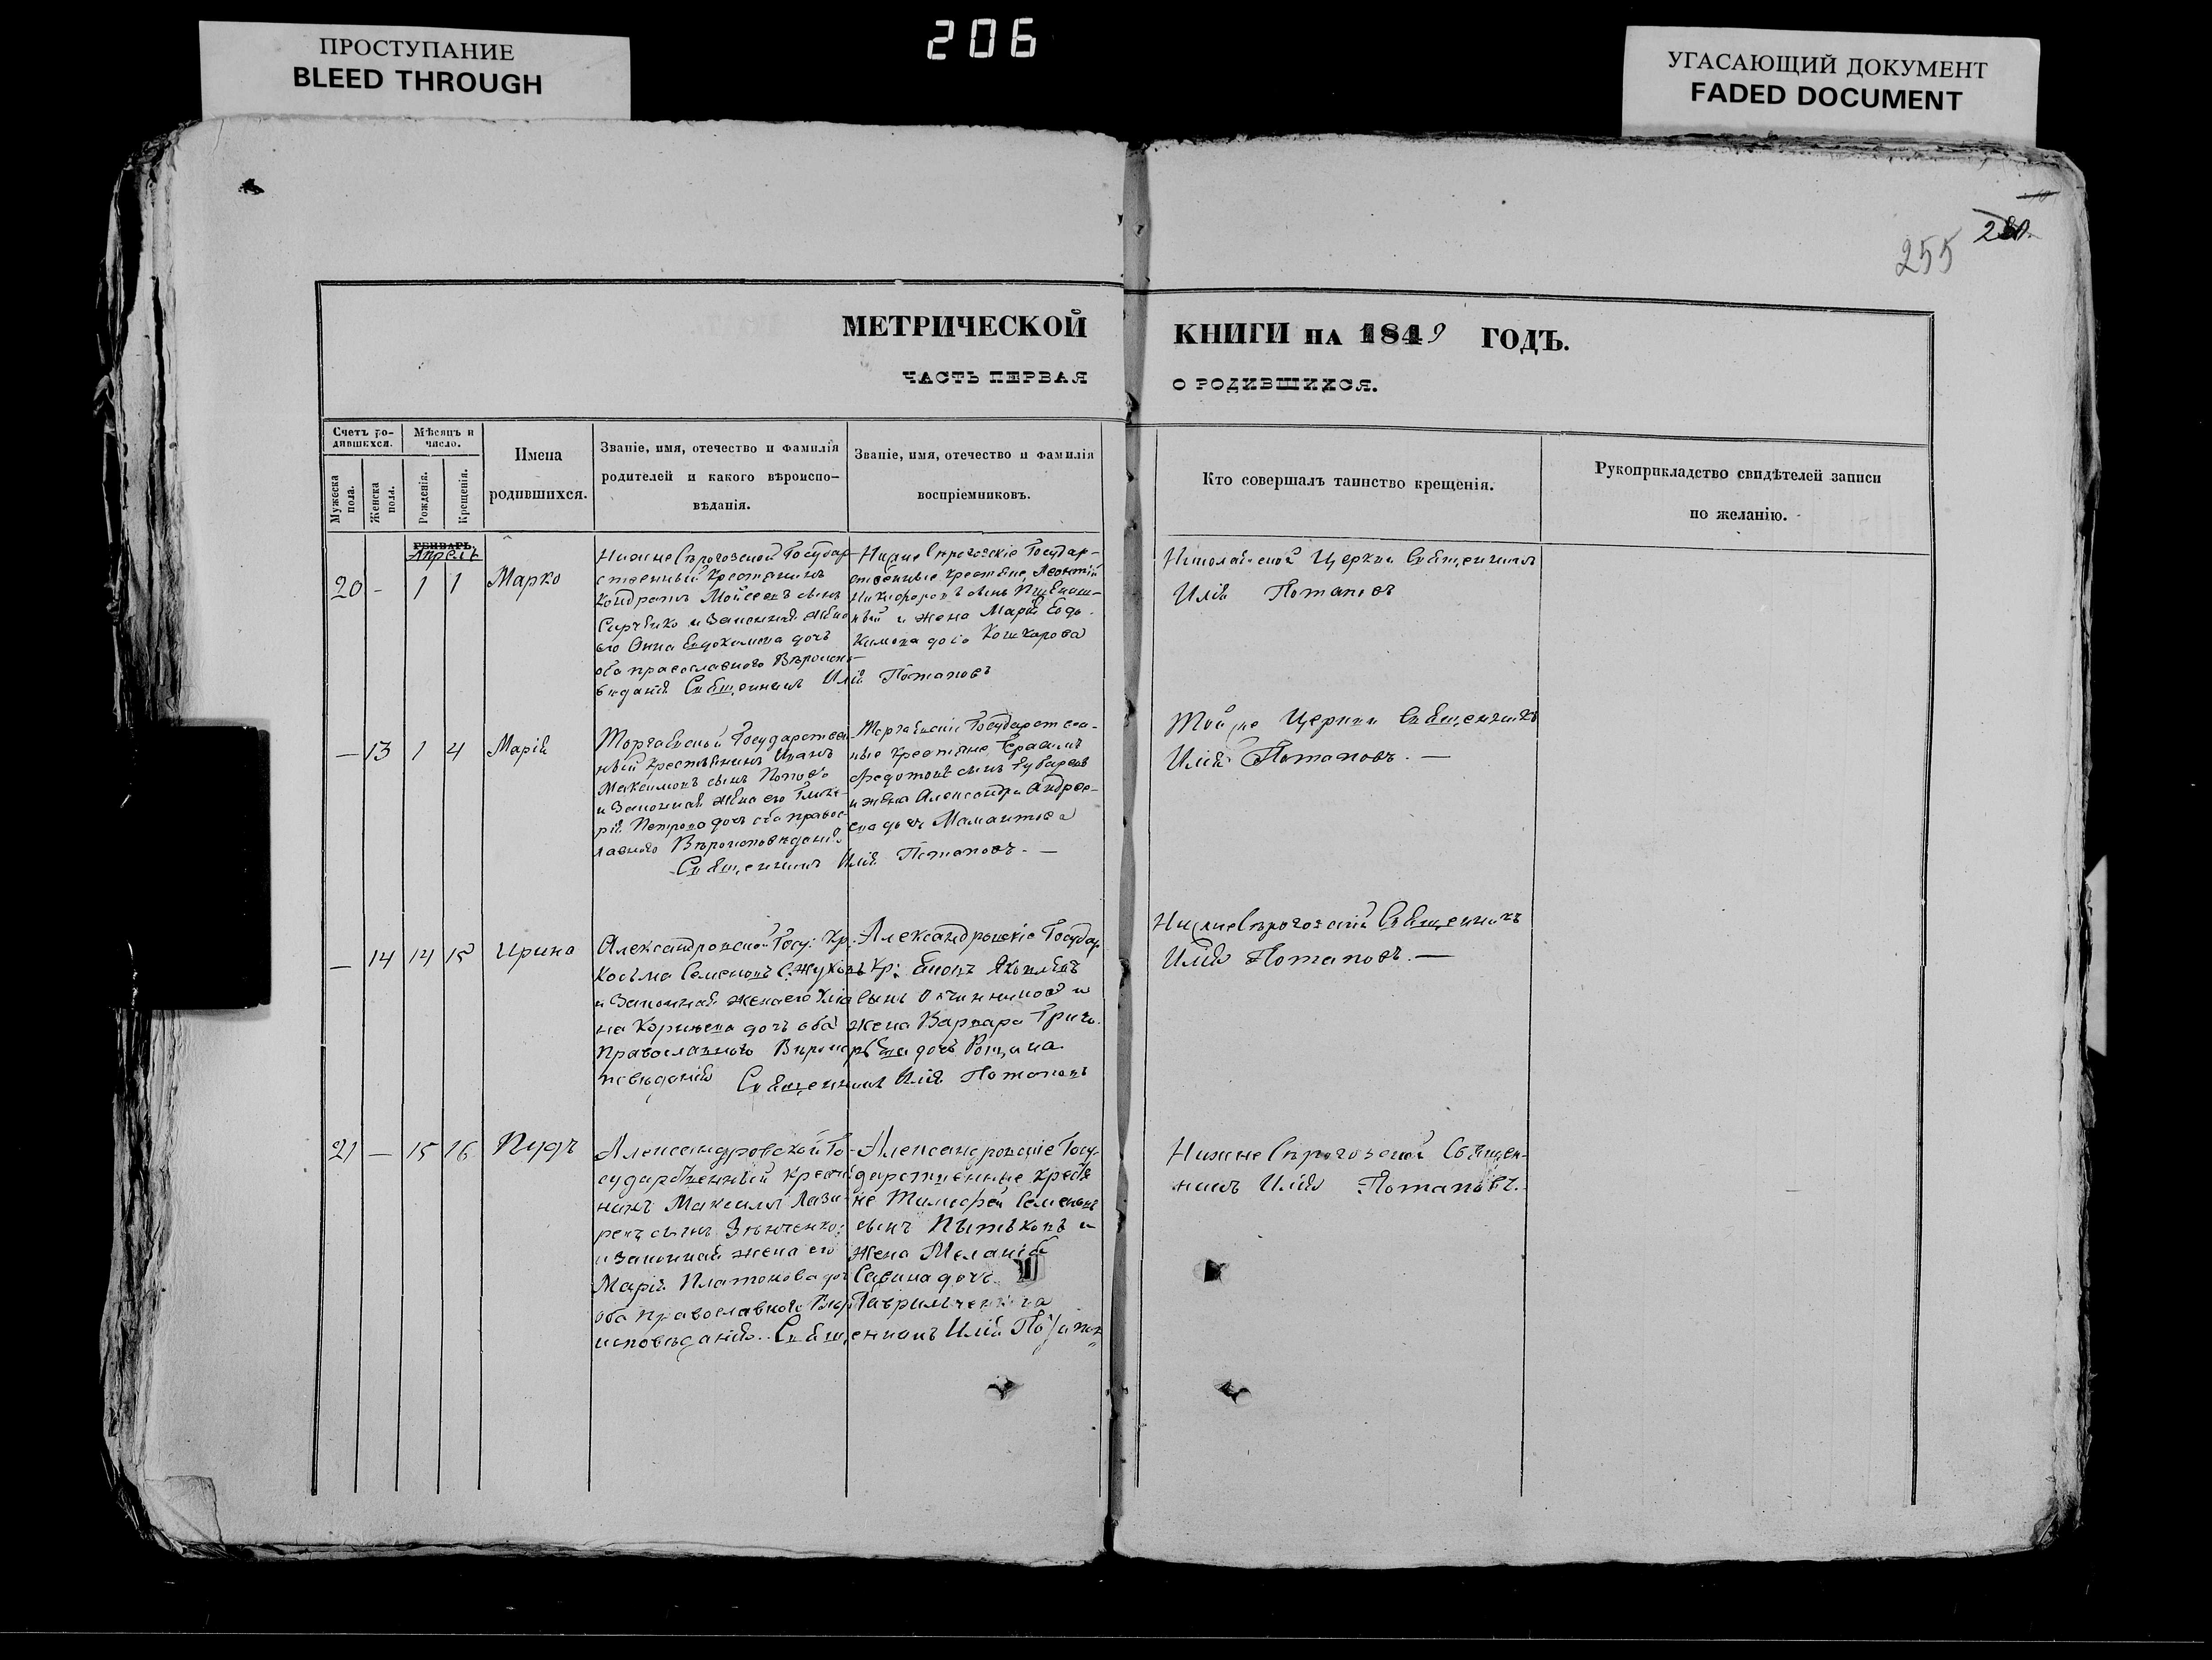 ПРОСТУПАНИЕ
BLEED THROUGH
206
УГАСАЮЩИЙ ДОКУМЕНТ
FADED DOCUMENT
255
МЕТРИЧЕСКОЙ
КНИГИ НА 1849 ГОДЪ.
ЧАСТЬ ПЕРВАЯ
О РОДИВШИХСЯ.
Счетъ ро-
дившихся.
Мѣсяцъ и
число.
Мужеска
пола.
Женска
пола.
Рожденія.
Крещенія.
Имена
родившихся.
Званіе, имя, отечество и фамилія
родителей и какого вѣроиспо-
вѣданія.
Званіе, имя, отечество и фамилія
воспріемниковъ.
Кто совершалъ таинство крещенія.
Рукоприкладство свидѣтелей записи
по желанію.
ГЕНВАРЬ
Апрель
20 - 1 1 Марко
НижнеСѣрогозской Государ-
ственный Крестянинъ
Кондратъ Мойсеевъ сынъ
и Законная жена
его Анна Евдокимова дочь
оба православнаго Вѣроиспо-
веданія Священникъ Илія Потаповъ
Нижне Сѣрогозскіе Государ-
ственные Крестяне, Леонтій
Никифоровъ сынъ
и жена Марія Евдо-
кимова дочь Кошкарова
Николаевской Церкви Священникъ
Илія Потаповъ
— 13 1 4 Марія
Торгаевской Государствен-
ный Крестьянинъ Иванъ
Максимовъ сынъ Попов
и Законная жена его Глике-
рія Петрова дочь оба правос-
лавнаго Вѣроисповѣданія
Священникъ Илія Потаповъ. —
Торгаевскіе Государствен-
ные Крестяне, Герасимъ
Федотовъ сынъ Губарев
и жена Александра Андрее-
ва дочь Мамантова
Той же Церкви Священникъ
Илія Потаповъ. —
— 14 14 15 Ирина
Александровской Госу: Кр.
Косьма Семеновъ С. Жуковъ
и Законная жена его Улія-
на Корнеева дочь оба
Православнаго Вѣроис-
повѣданія Священникъ Илія Потаповъ
Александровскіе Государ.
Кр: Яковлевъ
сынъ Овчинников и
жена Варвара Григо-
рьева дочь Рощина
НижнеСѣрогозскій Священникъ
Илія Потаповъ. —
21 — 15 16 Пудъ
Александровской Го-
сударственный Крестя-
нинъ Максимъ Лаза-
ревъ сынъ Зѣнченко;
и Законная жена его
Марія Платонова доч
оба Православнаго Вѣро
исповѣданія. Священникъ Илія Потапов
Александровскіе Госу-
дарственные Крестя
не Тимофей Семеновъ
сынъ Пытьковъ и
жена Меланія
Савина дочь
Гаврильченкова
НижнеСѣрогозской Священ-
никъ Илія Потаповъ.